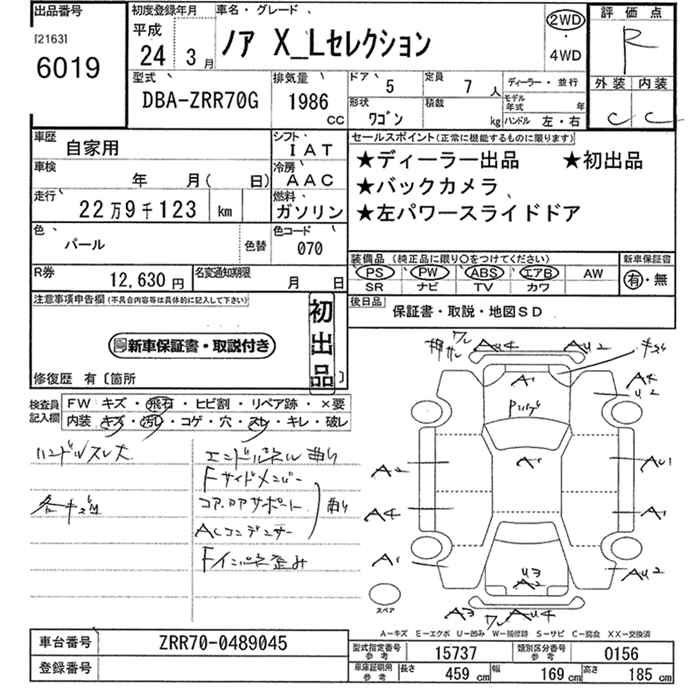 出品番号
[2163]
6019
初度登録年月
平成
24 3月
車名・グレード
ノア X_Lセレクション
2WD
・
4WD
評価点
R
外装 内装
C C
型式
DBA-ZRR70G
排気量
1986
CC
ドア
5
定員
7 人
形状
ワゴン
積載
kg
ディーラー・並行
モデル年式 年
ハンドル 左・右
車歴
自家用
シフト
IAT
車検
年 月( 日)
冷房
AAC
走行
22万9千123 km
燃料
ガソリン
色
パール
色替
色コード
070
R券
12,630円
名変通知期限
月 日
セールスポイント(正常に機能するものに限ります)
★ディーラー出品 ★初出品
★バックカメラ
★左パワースライドドア
装備品 (純正品に限り○をつけてください)
新車保証書
PS PW ABS エアB AW
SR ナビ TV カワ
有・無
後日品
保証書・取説・地図SD
注意事項申告欄(不具合内容等は具体的に記入して下さい)
新車保証書・取説付き
初出品
修復歴 有〔箇所 〕
検査員記入欄
FW キズ・飛石・ヒビ割・リペア跡・×要
内装 キズ・汚レ・コゲ・穴・スレ・キレ・破レ
ハンドルスレ大
エンドパネル曲り
Fサイドメンバー
コアロアサポート
曲り
ACコンデンサー
Fインパネ歪み
ワレ
AU4
AU2
キズ
A1
U2
A1
A2
AU1
A4
A1
A1
AU2
U3
A2
A3
ワレ
AU4
スペア
A-キズ E-エクボ U-凹み W-補修跡 S-サビ C-腐食 XX-交換済
車台番号
ZRR70-0489045
登録番号
型式指定番号
参考
15737
類別区分番号
参考
0156
車庫証明用
参考
長さ
459 cm
幅
169 cm
高さ
185 cm